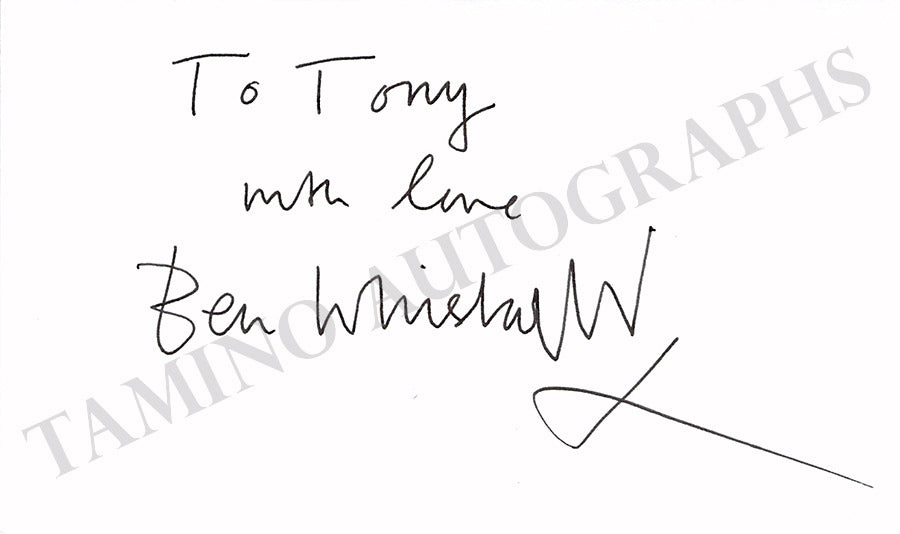 To Tony
with love
Ben Whishaw
TAMINO AUTOGRAPHS